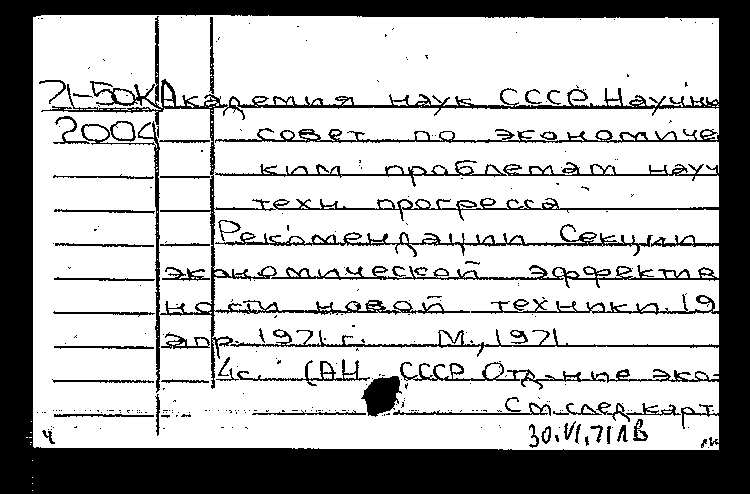 71-50К Академия наук СССР. Научны
2004 совет по экономичес
ким проблемам науч
техн. прогресса
Рекомендации Секции
экономической эффектив
ности новой техники. 19
апр. 1971 г. М., 1971.
4с. (АН СССР Отд-ние эко-
См. след карт
30.VI.71 ЛВ
ч